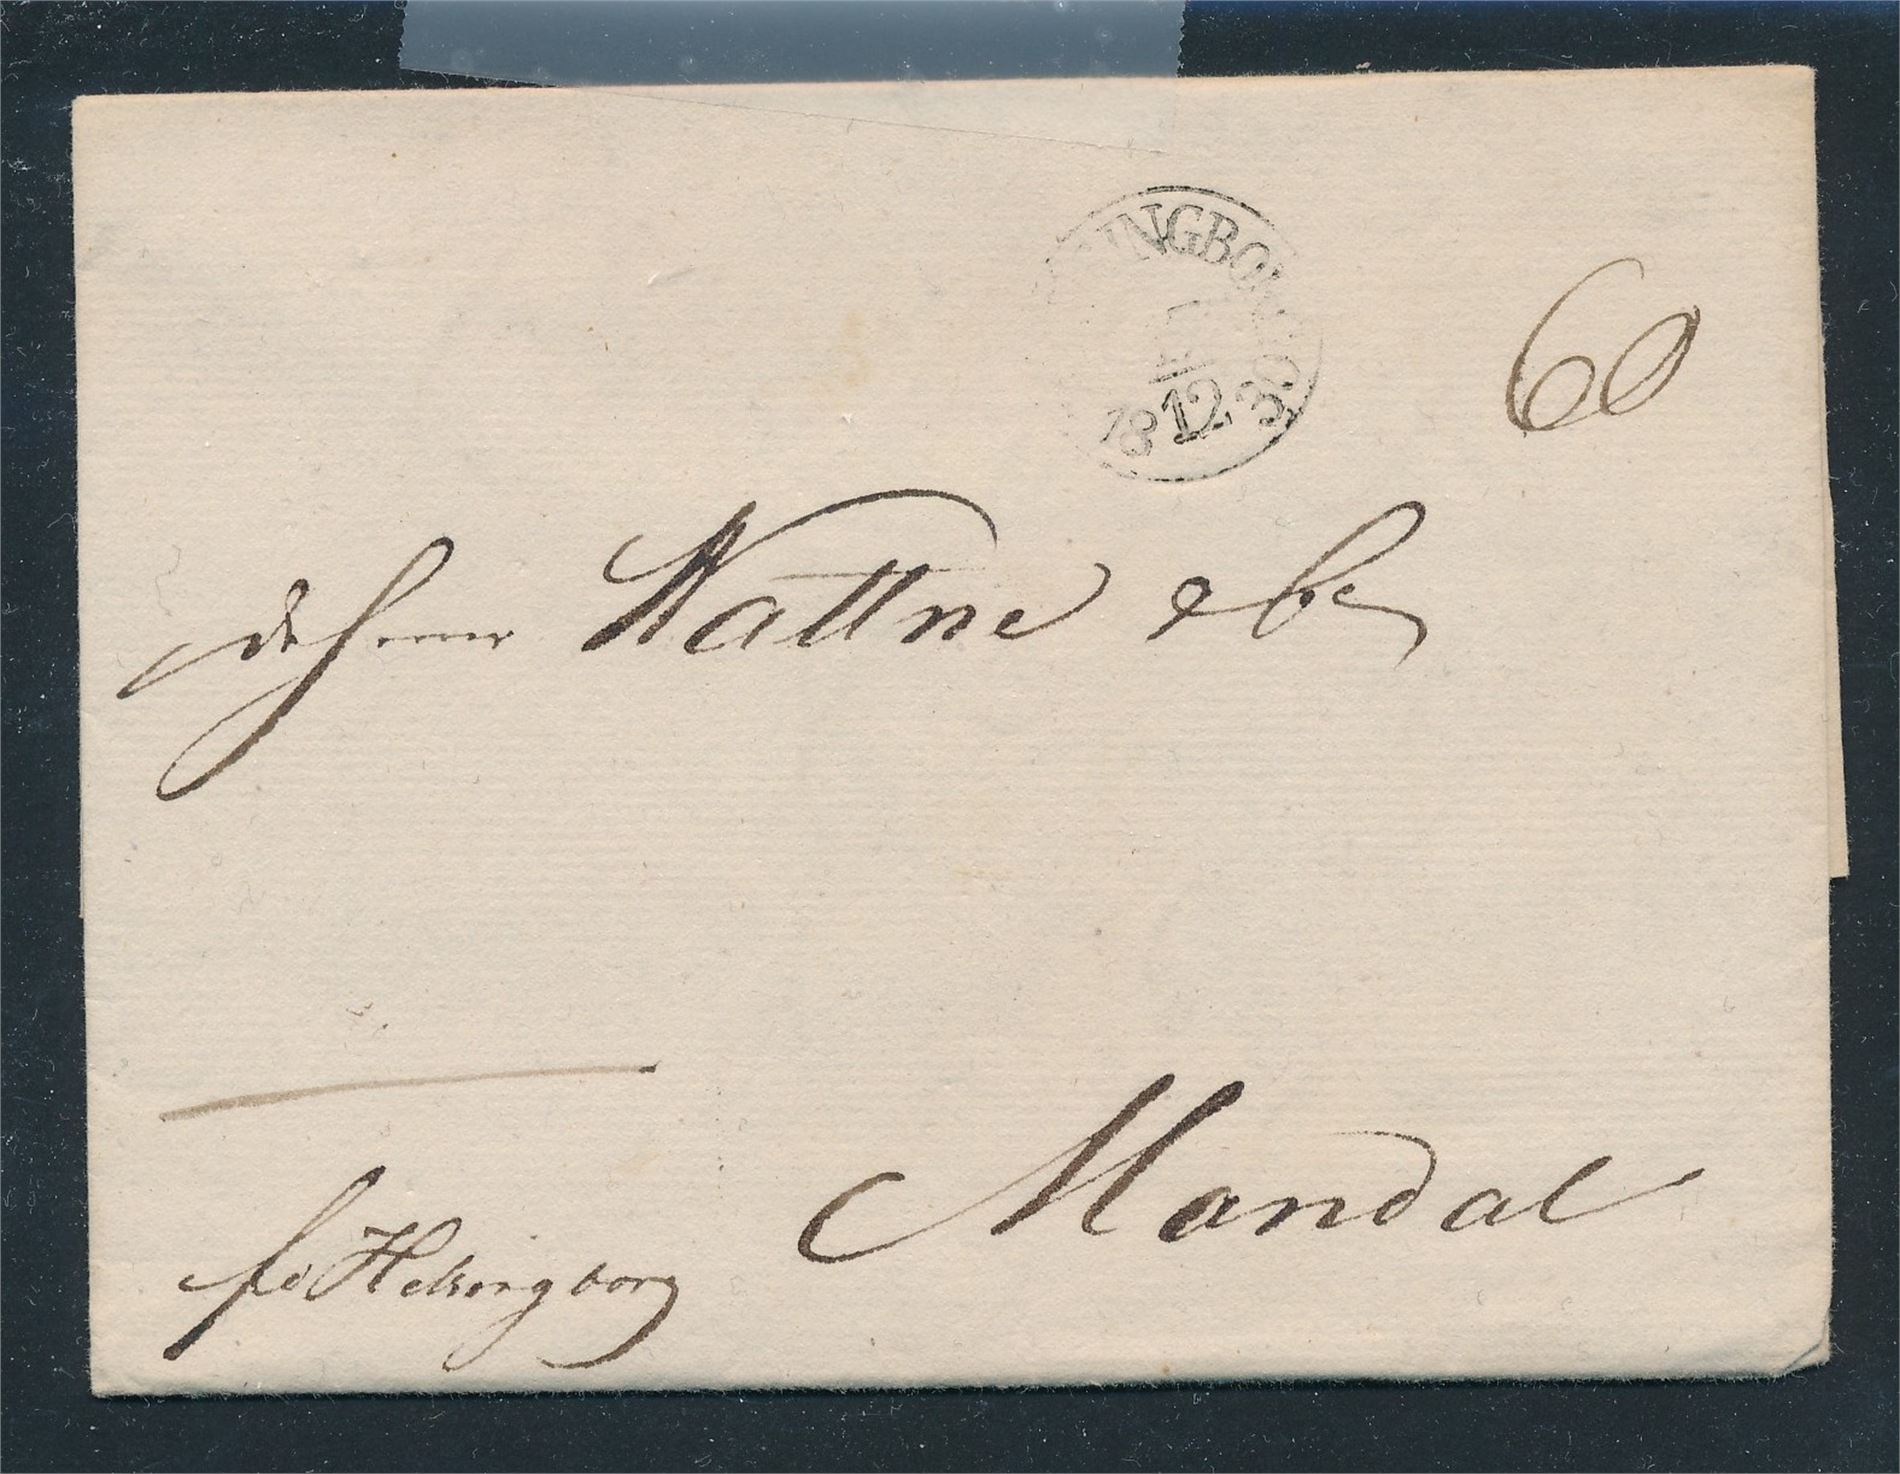 INGBO
1812 30
60
Herrer Wattne &
Mandal
fr Helsingborg